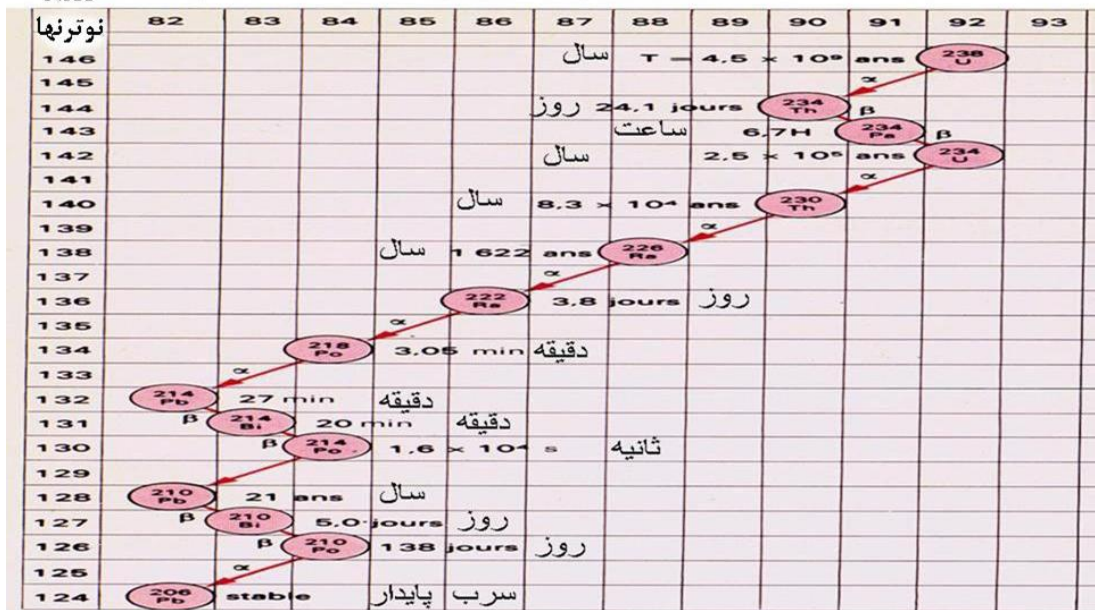 82 83 84 85 86 87 88 89 90 91 92 93
نوترنها
146 سال T = 4,5 × 10⁹ ans 238 U
145 α
144 روز 24,1 jours 234 Th β
143 ساعت 6,7H 234 Pa β
142 سال 2,5 × 10⁵ ans 234 U
141 α
140 سال 8,3 × 10⁴ ans 230 Th
139 α
138 سال 1 622 ans 226 Ra
137 α
136 222 Ra 3,8 jours روز
135 α
134 218 Po 3,05 min دقیقه
133 α
132 214 Pb 27 min دقیقه
131 β 214 Bi 20 min دقیقه
130 β 214 Po 1,6 × 10⁴ s ثانیه
129
128 210 Pb 21 ans سال
127 β 210 Bi 5,0 jours روز
126 β 210 Po 138 jours روز
125 α
124 206 Pb stable سرب پایدار